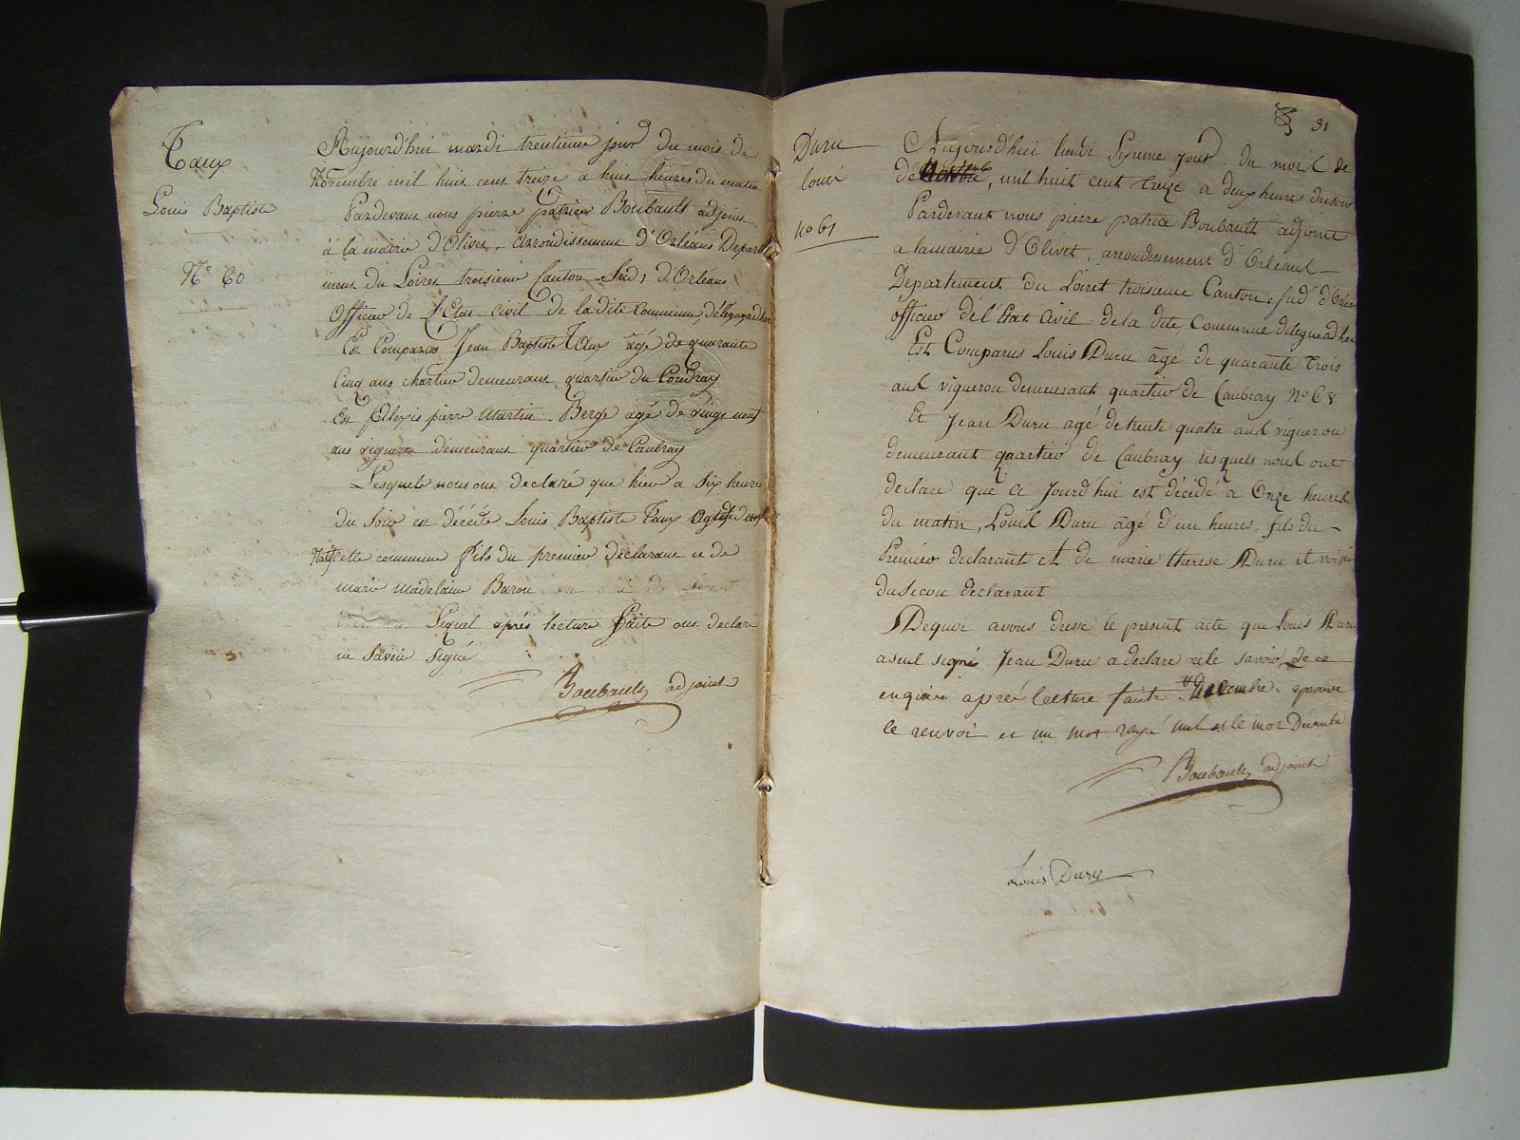 Taux
Louis Baptiste
N° 60
Aujourd'hui mardi trentieme jour du mois de
Novembre mil huit cent treize a huit heures du matin
Pardevant nous pierre patrice Boubault adjoint
à la mairie d'Olivet, arrondissement d'Orléans Departe
ment du Loiret troisieme Canton Sud, d'Orleans
Officier de l'Etat civil de la dite Commune, délégué ad hoc
Est Comparus Jean Baptiste Taux âgé de quarante
Cinq ans chartier demeurant quartier du Coudray
Et Alexis pierre Martin Berge agé de vingt neuf
ans vigneron demeurant quartier de Caubray
Lesquels nous ont declaré que hier a Six heures
du Soir est décédé Louis Baptiste Taux agé de
cette commune fils du premier déclarant et de
marie madelaine Baron
Lequel après lecture faite ont declaré
ne Savoir Signé
Boubault adjoint
31
Duru
louis
no 61
Aujourd'hui lundi Sixieme jour du mois de
de, mil huit cent treize a deux heures du soir
Pardevant nous pierre patrice Boubault adjoint
a la mairie d'Olivet, arrondissement d'Orleans
Departement du Loiret troisieme Canton Sud d'Orleans
officier de l'Etat Civil de la dite Commune delegue ad hoc
Est Comparus Louis Duru âgé de quarante trois
ans vigneron demeurant quartier de Caubray no 68
Et Jean Duru agé de trente quatre ans vigneron
demeurant quartier de Caubray lesquels nous ont
declaré que ce jourd'hui est décédé a Onze heures
du matin, Louis Duru âgé d'un heures, fils du
Premier declarant et de marie therese Duru et
du Second declarant
Dequoi avons dressé le present acte que Louis Duru
a seul signé Jean Duru a declaré ne le savoir, de ce
enquis après lecture faite Decembre. aprouvé
le renvoi et un mot rayé nul et le mot Decembre
Boubault adjoint
Louis Duru